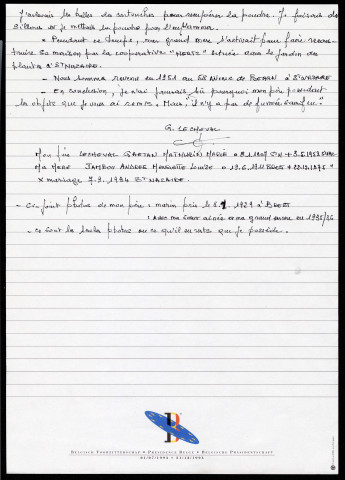 j'enlevais les balles des cartouches pour récupérer la poudre. Je finissais de
et je mettais la poudre pour l'enflammer.
* Pendant ce temps, mon grand père s'activait pour faire recons-
truire sa maison par la coopérative "HEBTS" située dans le Jardin des
plantes à ST NAZAIRE.
- Nous sommes revenus en 1951 au 58 de PLEHEN à ST NAZAIRE
- En conclusion, je n'ai jamais su pourquoi mon père possédait
les objets que je vous ai remis. Mais "il n'y a pas de fumée sans feu"
G. LECHEVAL
Mon père LECHEVAL GAETAN MATHURIN MARIE
Ma Mère JAMBOU ANDREE HENRIETTE LOUISE
x mariage 7.3.1934 ST NAZAIRE.
- Ci-joint photos de mon père : marin pris le 1929 à BREST
: avec ma sœur aînée et ma grand mère en 1935/36
- ce sont les seules photos ou ce qu'il en reste que je possède.
B
BELGISCH VOORZITTERSCHAP • PRESIDENCE BELGE • BELGISCHE PRÄSIDENTSCHAFT
01/07/1993 • 31/12/1993